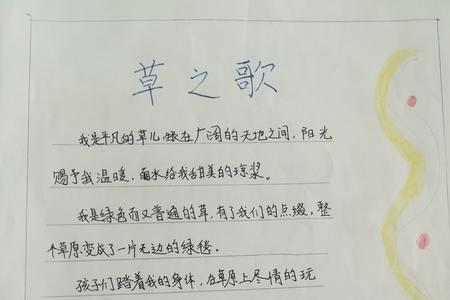 草之歌
我是平凡的草儿,躺在广阔的天地之间,阳光
赐予我温暖,雨水给我甜美的琼浆。
我是绿色而又普通的草,有了我们的点缀,整
个草原变成了一片无边的绿毯.
孩子们踏着我的身体,在草原上尽情的玩